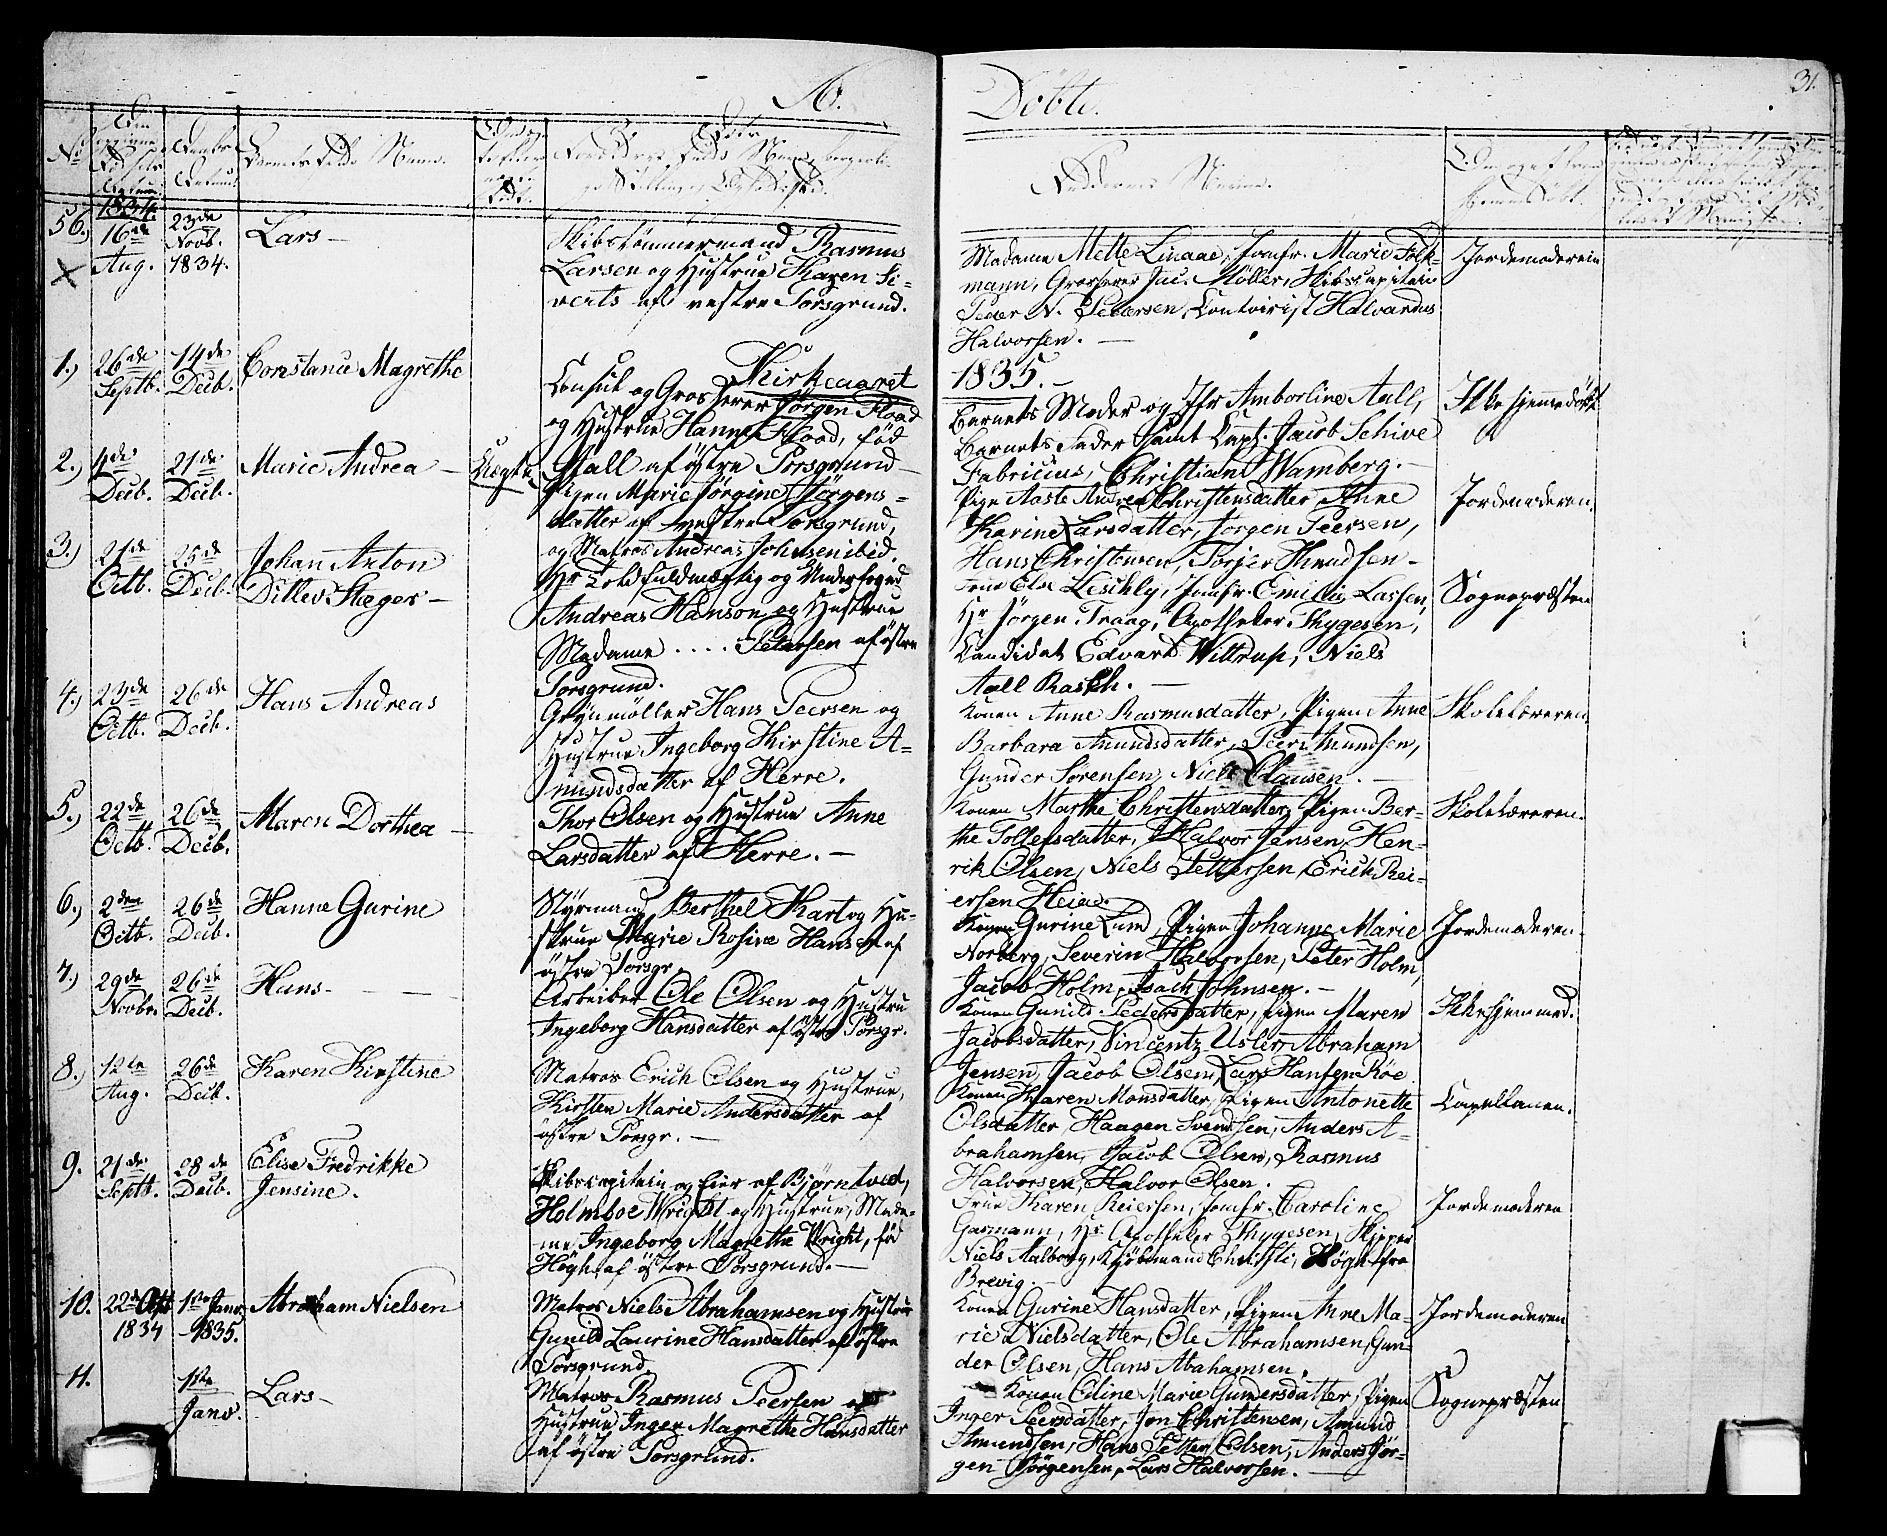 A.
Döbte.
31.
No
Barnets fulde Navn.
Faddernes Navne.
1834.
56.) 16de Aug. 23de Novb. 1834. Lars
Skibstømmermand Rasmus
Larsen og Hustrue Karen Si-
verts af vestre Porsgrund.
Madame Mette Linaae, Jomfr. Marie Folk-
mann, Grosserer Jac. Møller, Skibscapitain
Peder N. Pedersen, Contoirist Halvardus
Halvorsen.
Jordemoderen
Kirkeaaret
1835.
1.) 26de Septb. 14de Decb. Constance Magrethe
Consul og Grosserer Jørgen Flood
og Hustrue Hanna Flood, fød
Aall af östre Porsgrund
Barnets Moder og Jfr Amborline Aall,
Barnets Fader samt Capt. Jacob Schive
Fabricius, Christian Wamberg.
Ikke hjemmedöbt
2.) 4de Decb. 21de Decb. Marie Andrea
Uægte
Pigen Marie Jørgine Jørgens-
datter af vestre Porsgrund,
og Matros Andreas Johnsen ibid.
Pige Aaste Andrea Christensdatter Anne
Karine Larsdatter, Jørgen Peersen,
Hans Christensen, Torger Knudsen
Jordemoderen.
3.) 21de Octb. 25de Decb. Johan Anton
Ditlev Stæger
Hr Toldfuldmægtig og Underfoged
Andreas Hanson og Hustrue
Madame .... Petersen af östre
Porsgrund.
Frue Else Leschly, Jomfr. Emilie Lassen,
Hr Jørgen Traag, Apotheker Thygesen,
Candidat Edvard Wittrup, Niels
Aall Rasch.
Sognepræsten
4.) 23de Octb. 26de Decb. Hans Andreas
Grynmøller Hans Peersen og
Hustrue Ingeborg Kirstine A-
mundsdatter af Herre.
Konen Anne Rasmusdatter, Pigen Anne
Barbara Amundsdatter, Peer Amundsen,
Gunder Sørensen, Niels Clausen.
Skolelæreren.
5.) 22de Octb. 26de Decb. Maren Dorthea
Thor Olsen og Hustrue Anne
Larsdatter af Herre.
Konen Marthe Christensdatter, Pigen Ber-
the Tollefsdatter, Halvor Jensen, Hen-
rik Olsen, Niels Pettersen, Erich Rei-
ersen Heiae.
Skolelæreren.
6.) 2den Octb. 26de Decb. Hanne Gurine
Styrmand Berthel Kart og Hu-
strue Marie Rosine Hansen af
östre Porsgr.
Konen Gurine Lund, Pigen Johanne Marie
Norberg, Severin Halvorsen, Peter Holm,
Jacob Holm, Isach Johnsen.
Jordemoderen.
7.) 29de Novbr. 26de Decb. Hans
Arbeider Ole Olsen og Hustru
Ingeborg Hansdatter af östre Porsgr.
Konen Gunild Pedersdatter, Pigen Maren
Jacobsdatter, Vincentz Usler, Abraham
Jensen, Jacob Olsen, Lars Hansen Röe
Ikke hjemmed.
8.) 12te Aug. 26de Decb. Karen Kirstine
Matros Erich Olsen og Hustrue,
Kirsten Marie Andersdatter af
östre Porsgr.
Konen Karen Monsdatter, Pigen Antonette
Olsdatter, Haagen Svendsen, Anders A-
brahamsen, Jacob Olsen, Rasmus
Halvorsen, Halvor Olsen.
Capellanen.
9. 21de Septb. 28de Decb. Elise Fredrikke
Jensine.
Skibscapitain og Eier af Bjørntved,
Holmboe Wright og Hustrue, Mada-
me Ingeborg Magrethe Wright, fød
Högh, af östre Porsgrund.
Frue Karen Reiersen, Jomfr. Caroline
Garmann, Hr. Apotheker Thygesen, Skipper
Niels Aalborg, Kjøbmand Christli, Högh fra
Brevig.
Jordemoderen
10. 22de Octb 1834 1ste Janv. 1835. Abraham Nielsen
Matros Niels Abrahamsen og Hustrue
Gunild Laurine Hansdatter af östre
Porsgrund.
Konen Gurine Hansdatter, Pigen Anne Ma-
rie Nielsdatter, Ole Abrahamsen, Gun-
der Olsen, Hans Abahamsen,
Jordemoderen
11. 1ste Janv. Lars
Matros Rasmus Peersen og
Hustrue Inger Magrethe Hansdatter
af östre Porsgrund.
Konen Eline Marie Gundersdatter, Pigen
Inger Peersdatter, Jon Christensen, Amund
Amundsen, Hans Petter Olsen, Anders Jör-
gen Jörgensen, Lars Halvorsen.
Sognepræsten